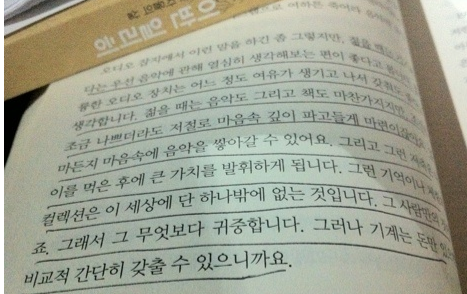 이반 일리히
오디오 잡지에서 이런 말을 하긴 좀 그렇지만, 젊을
다는 우선 음악에 관해 열심히 생각해보는 편이 좋다고
륭한 오디오 장치는 어느 정도 여유가 생기고 나서
생각합니다. 젊을 때는 음악도 그리고 책도 마찬가지지만,
조금 나쁘더라도 저절로 마음속 깊이 파고들게
마든지 마음속에 음악을 쌓아갈 수 있어요. 그리고 그런
이를 먹은 후에 큰 가치를 발휘하게 됩니다. 그런 기억이나
컬렉션은 이 세상에 단 하나밖에 없는 것입니다. 그 사람만의
죠. 그래서 그 무엇보다 귀중합니다. 그러나 기계는 돈만
비교적 간단히 갖출 수 있으니까요.